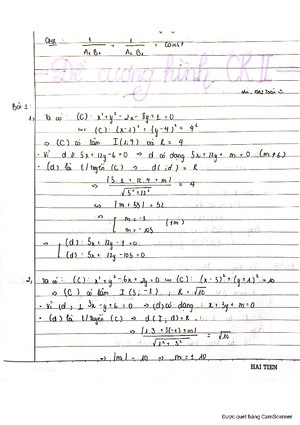 CMR: 1/A₁B₀ + 1/A₁B₀ = const
Đề cương hình CK II
Bài 1
1, Ta có: (C): x² + y² - 2x - 8y + 1 = 0
⇔ (C): (x-1)² + (y-4)² = 4²
⇒ (C) có tâm I(1;4) và R = 4
• Vì d // 5x + 12y - 6 = 0 ⇒ d có dạng 5x + 12y + m = 0 (m ≠ 6)
• (d) là t/tuyến (C) ⇒ d(I;d) = R
⇒ |5.1 + 12.4 + m| / √(5² + 12²) = 4
⇔ |m + 53| = 52
⇒ [ m = -1 (tm)
m = -105
⇒ [ (d): 5x + 12y - 1 = 0
(d): 5x + 12y - 105 = 0
2, Ta có: (C): x² + y² - 6x + 2y = 0 ⇔ (C): (x-3)² + (y+1)² = 10
⇒ (C) có tâm I(3;-1); R = √10
• Vì (d) ⊥ 3x - y + 6 = 0 ⇒ (d) có dạng: x + 3y + m = 0
• (d) là t/tuyến (C) ⇒ d(I, d) = R
⇒ |1.3 + 3(-1) + m| / √(1² + 3²) = √10
⇒ |m| = 10 ⇒ m = ± 10
HAI TIEN
Được quét bằng CamScanner